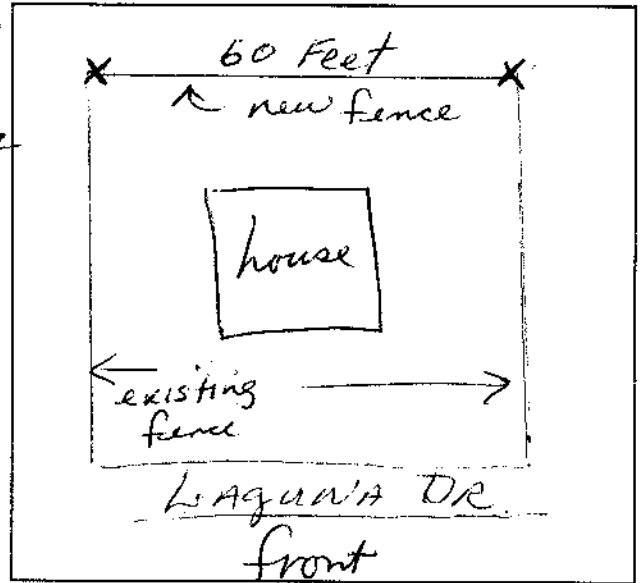 60 Feet
new fence
house
existing
fence
LAGUNA DR.
front